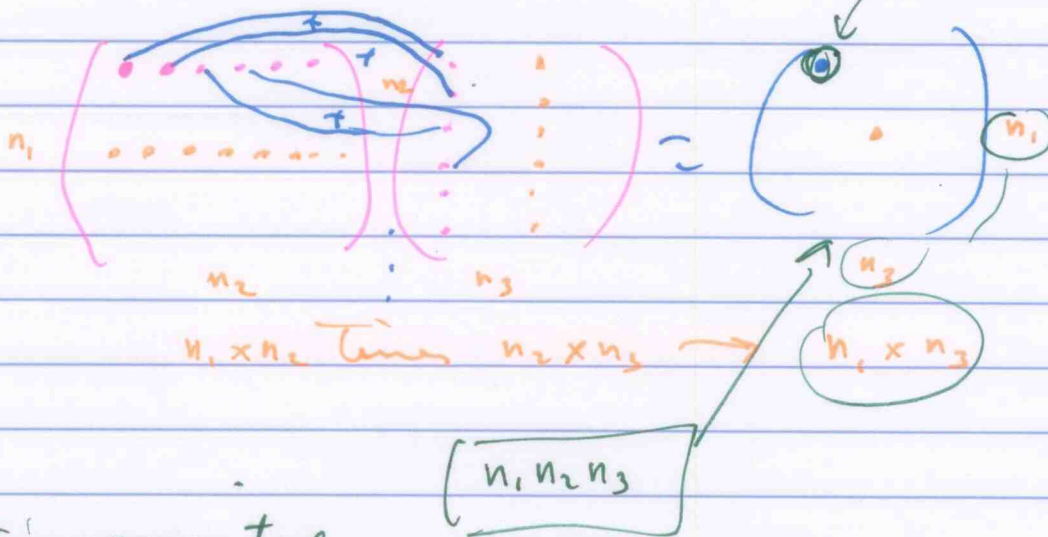 +
+
n2
+
n1
=
n1
n2
n3
n3
n1 × n2 Times n2 × n3 → n1 × n3
n1 n2 n3